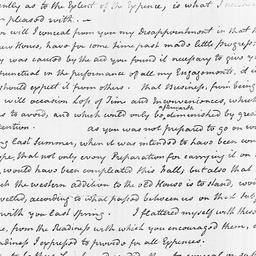 ently as to the Extent of the Expence, is what I
pleased with. —
or will I conceal from you my Disappointment in that th
New House, have for some time past made little progress:
ly was caused by the aid you found it necessary to give y
punctual in the performance of all my Engagements, & i
should expect it from others. That Business, from being
will occasion Loss of Time and Inconveniences, which
us to avoid, and which would only be afterwards diminished by great
tention. as you was not prepared to go on w
ing last Summer, when it was intended to have been con
ope, that not only every Preparation for carrying it on
would have been compleated this fall; but also that
ch the western addition to the old House is to stand, woul
velled, according to what passed between us on that sub
with you last Spring. I flattered myself with these
me, from the Readiness with which you encouraged them, a
adiness I expressed to provide for all Expences.